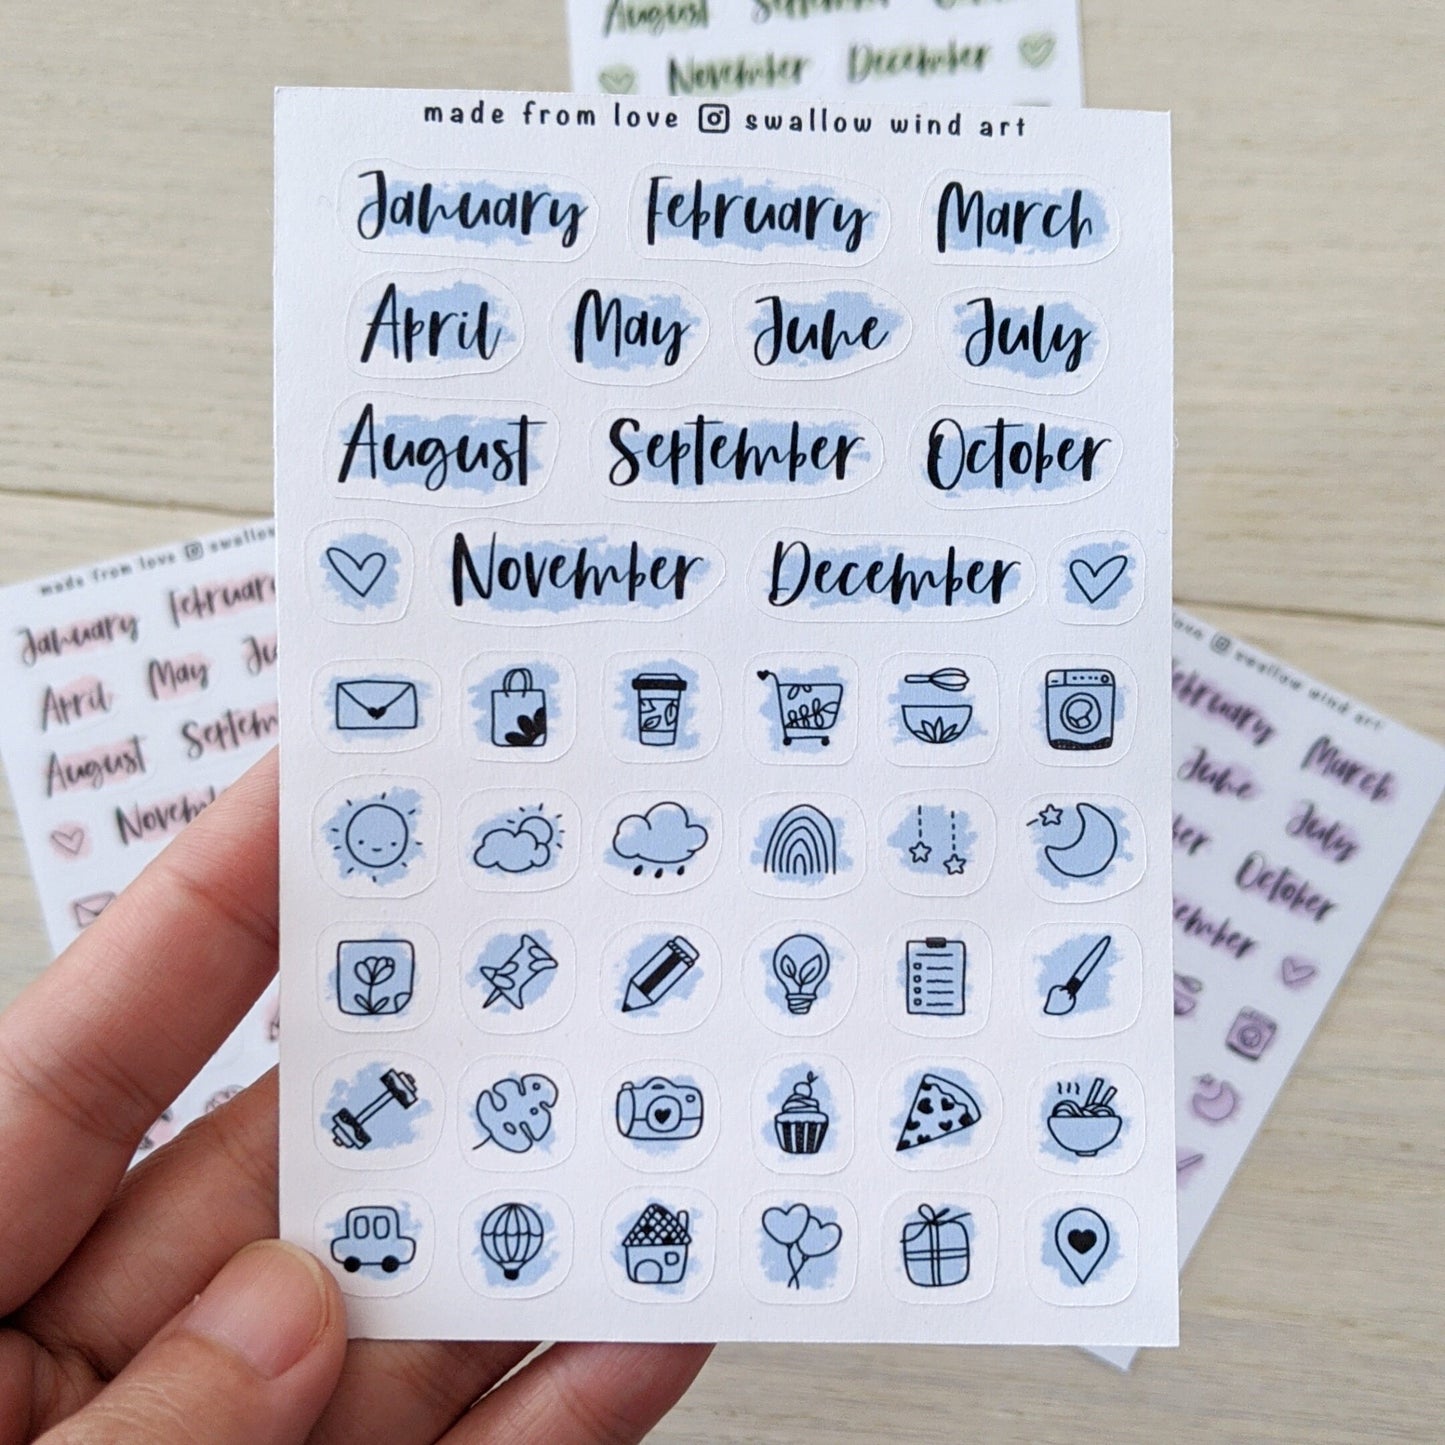 August September
November December
made from love swallow wind art
January February March
April May June July
August September October
November December
made from love swallow
January February
April May
August
love swallow wind art
February March
June July
October